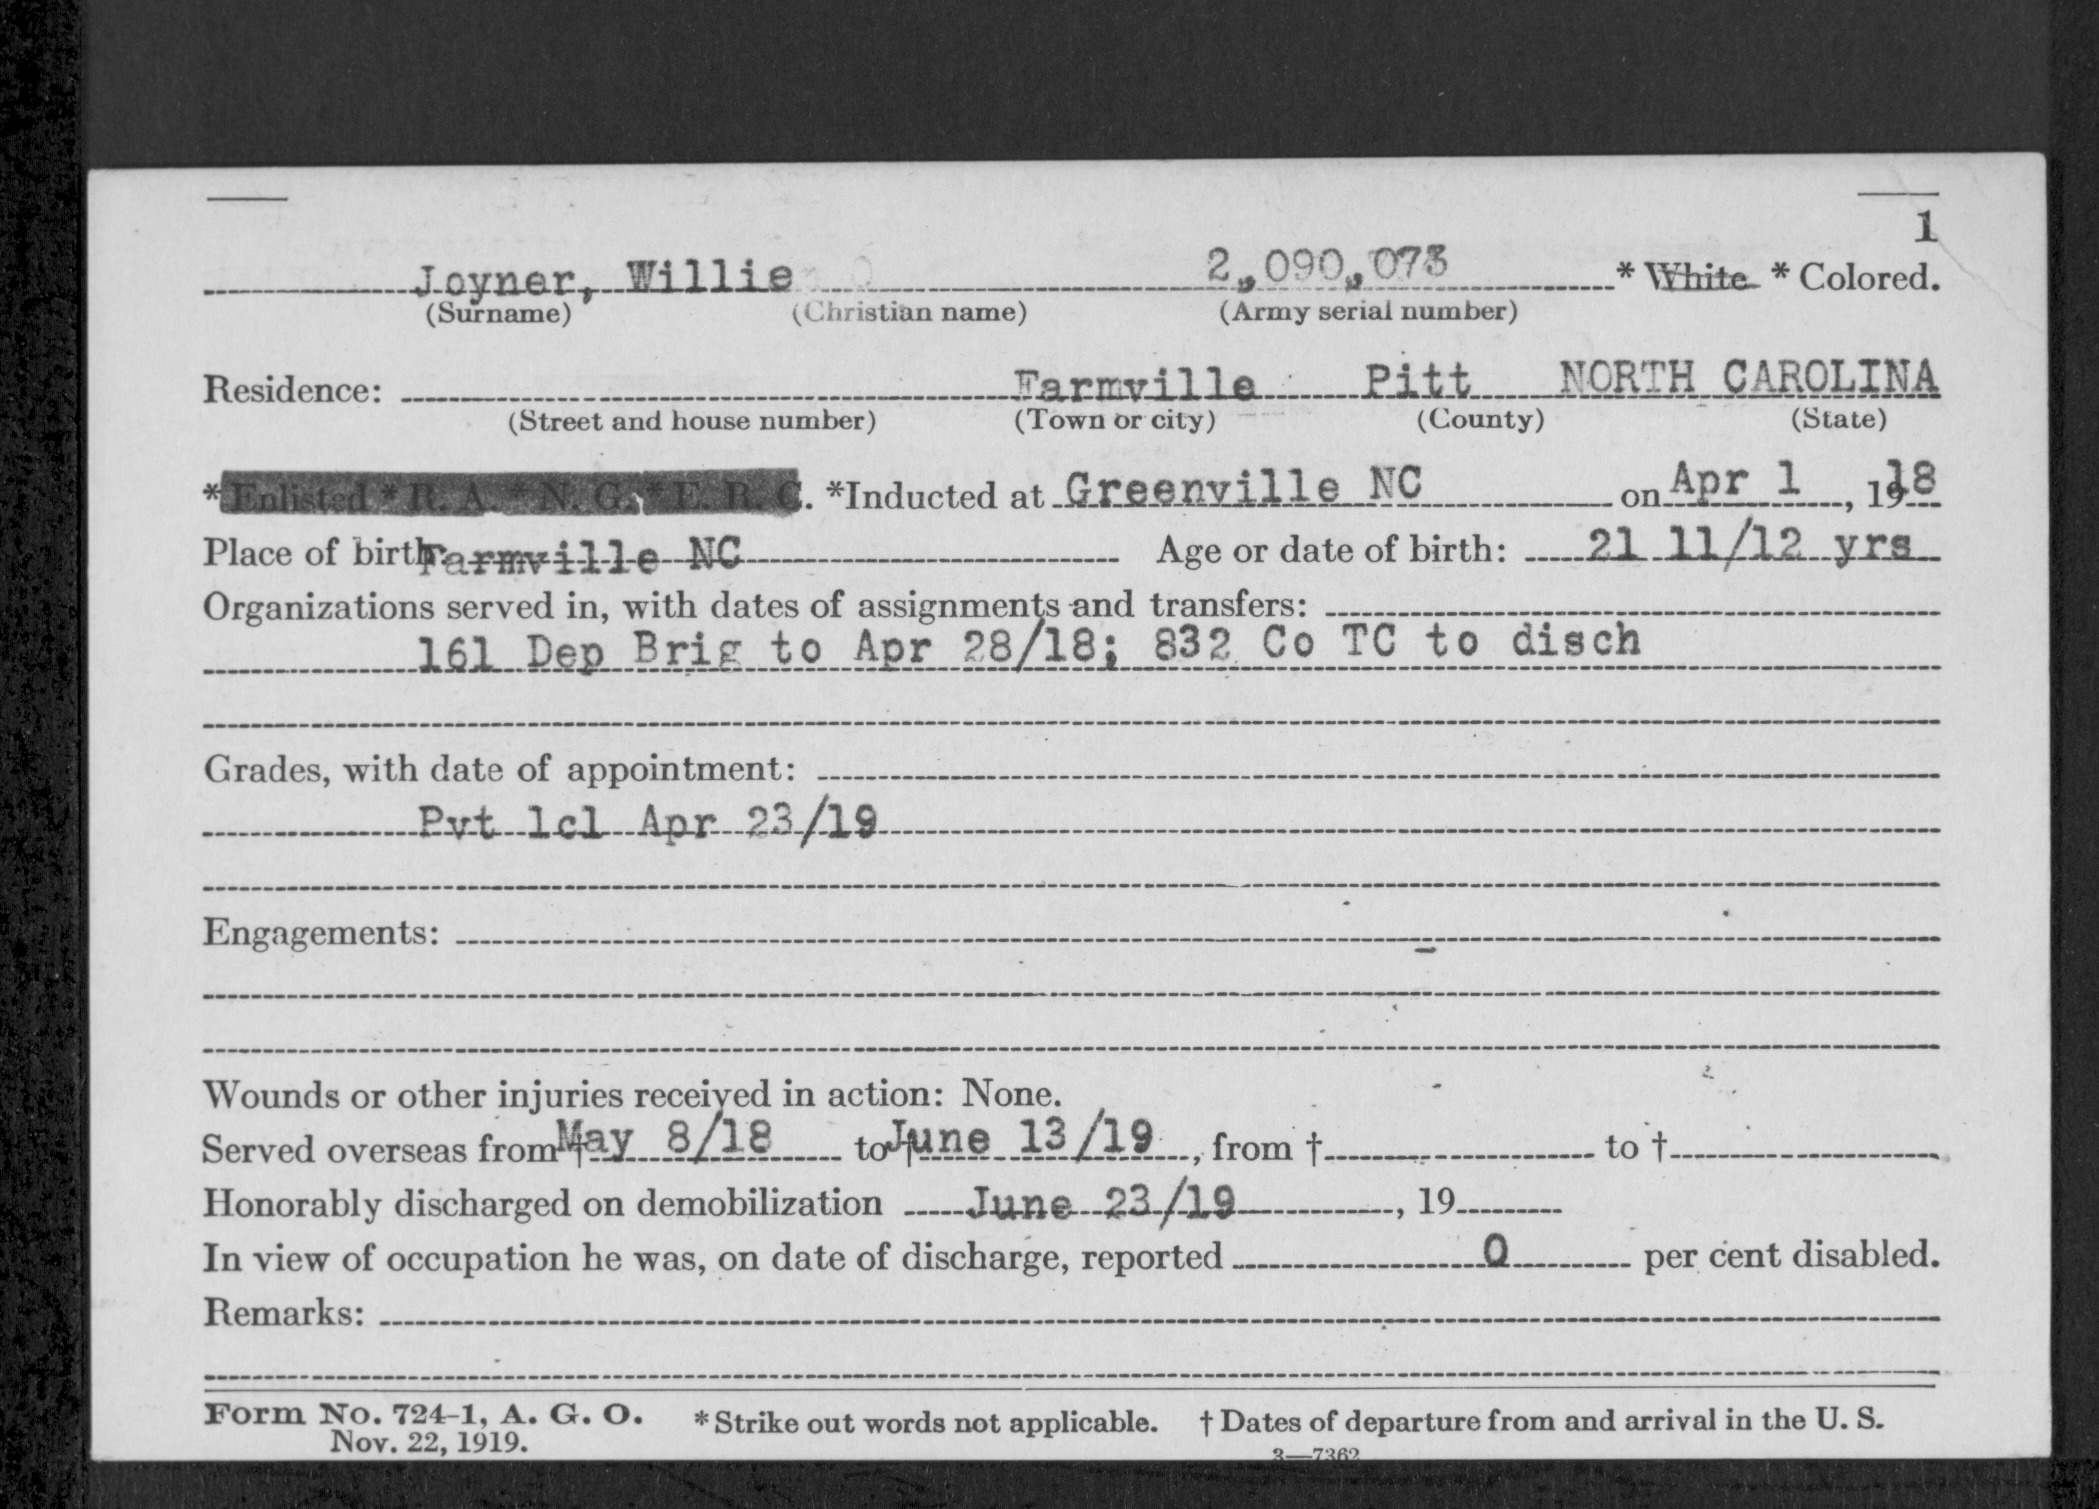 1
Joyner, Willie 2,090,073 * White * Colored.
(Surname) (Christian name) (Army serial number)
Residence: Farmville Pitt NORTH CAROLINA
(Street and house number) (Town or city) (County) (State)
* Enlisted * R. A. * N. G. * E. R. C. *Inducted at Greenville NC on Apr 1, 1918
Place of birth Farmville NC Age or date of birth: 21 11/12 yrs
Organizations served in, with dates of assignments and transfers:
161 Dep Brig to Apr 28/18; 832 Co TC to disch
Grades, with date of appointment:
Pvt 1cl Apr 23/19
Engagements:
Wounds or other injuries received in action: None.
Served overseas from † May 8/18 to † June 13/19, from † to †
Honorably discharged on demobilization June 23/19, 19
In view of occupation he was, on date of discharge, reported 0 per cent disabled.
Remarks:
Form No. 724-1, A. G. O. * Strike out words not applicable. † Dates of departure from and arrival in the U. S.
Nov. 22, 1919.
3—7362